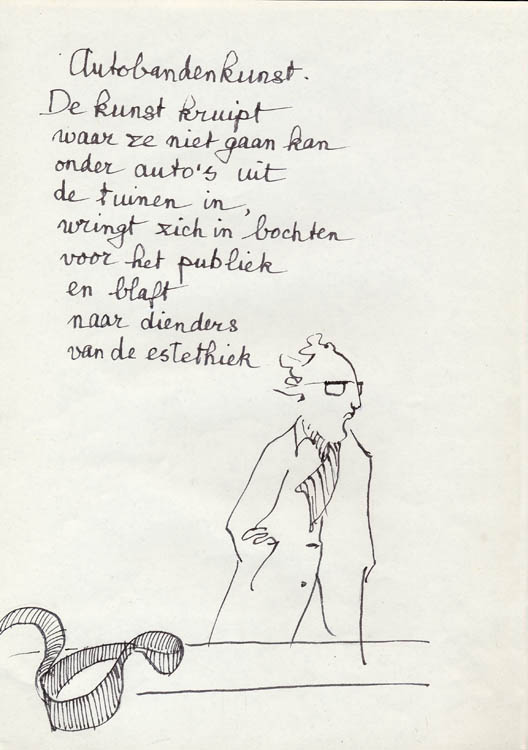 Autobandenkunst.
De kunst kruipt
waar ze niet gaan kan
onder auto's uit
de tuinen in,
wringt zich in bochten
voor het publiek
en blaft
naar dienders
van de estethiek